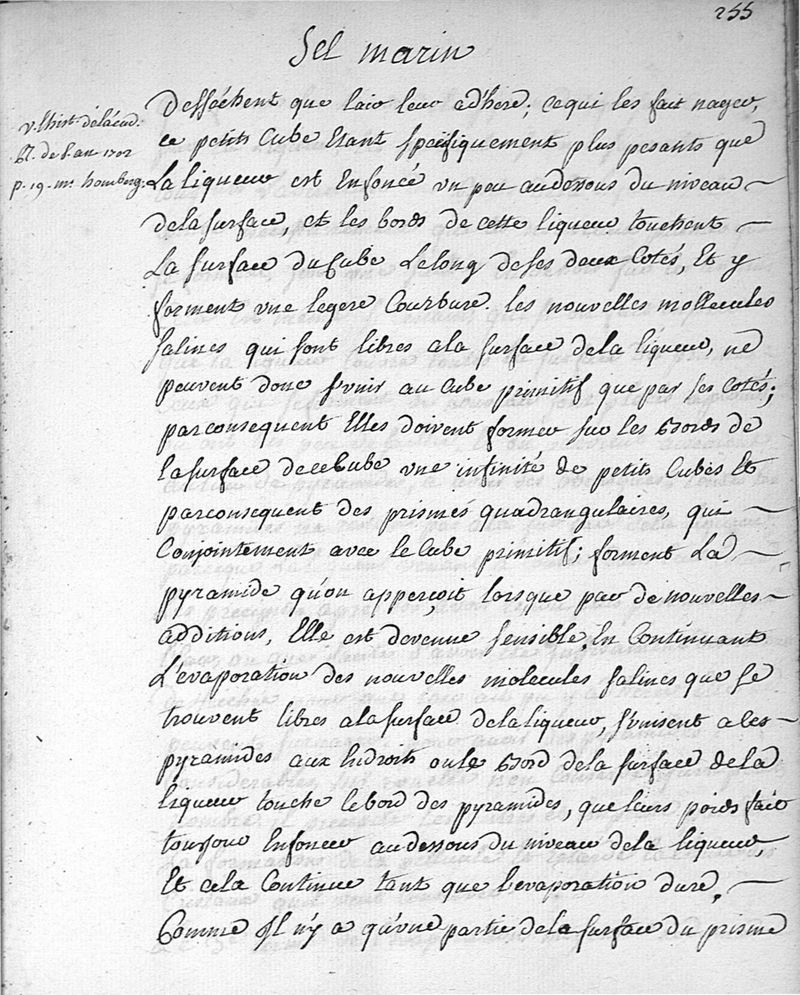 255
Sel marin
v. l'hist. de l'acad.
Rl. de l'an 1702
p. 19. mr homberg.
dessêchent que lair leur adhere; cequi les fait nager,
ce petits Cube Etant Specifiquement plus pesants que
La liqueur est Enfoncé un peu audessous du niveau
dela surface, et les bords de cette liqueur touchent
La surface du Cube Lelong deses deux Cotés, Et y
forment une legere Courbure. les nouvelles mollecules
salines qui sont libres ala surface dela liqueur, ne
peuvent donc s'unir au Cube primitif que par ses cotés;
parconsequent Elles doivent former sur les Bords de
la surface dece Cube une infinité de petits Cubes Et
parconsequent des prismes quadrangulaires, qui
Conjointement avec le Cube primitif; forment La
pyramide qu'on apperçoit lorsque par de nouvelles
additions, Elle est devenue sensible. En Continuant
L'evaporation des nouvelles molecules salines que se
trouvent libres ala surface dela liqueur, s'unisent a les
pyramides aux Endroits oule Bord dela surface dela
liqueur touche lebord des pyramides, que leurs poids fait
toujour Enfoncer audessous du niveau dela liqueur,
Et cela Continue tant que l'evaporation dure.
Comme Il n'y a qu'une partie dela surface du prisme